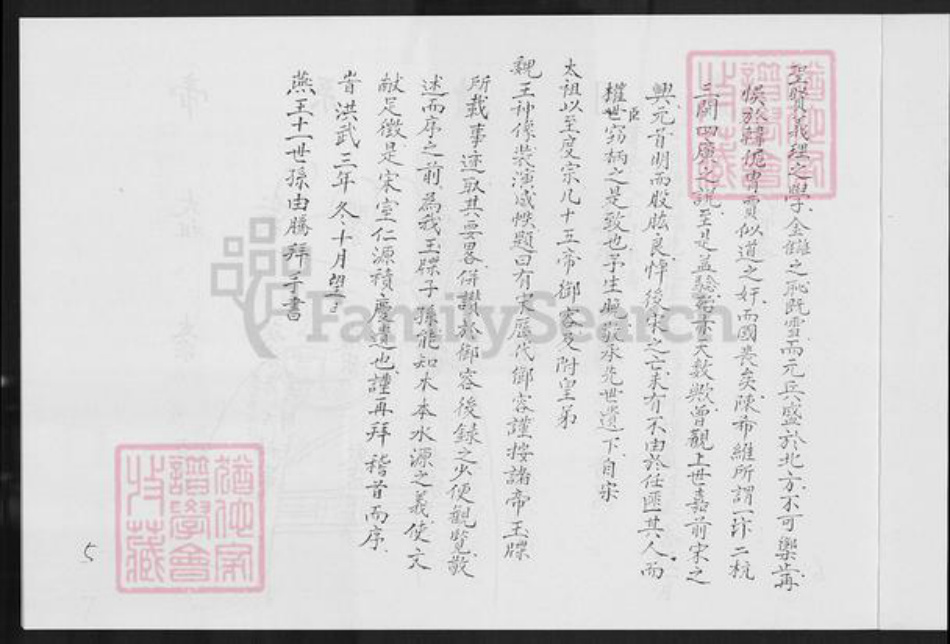 聖賢義理之學金讎之恥既雪而元兵盛於北方不可禦
悞於韓侂冑賈似道之奸而國喪矣陳希維所謂一汴二杭
三閩四廣之說至是益驗豈非天數歟曾觀上世嘉前宋之
興元首明而股肱良悼後宋之亡未有不由於任匪其人而
權臣世竊柄之是致也予生晚敬承先世遺下自宋
太祖以至度宗凡十五帝御容及附皇弟
魏王神像裝演成帙題曰有宋歷代御容謹按諸帝玉牒
所載事迹取其要畧併讚於御容後錄之少便觀覽敬
述而序之前為我玉牒子孫能知木本水源之義使文
献足徵是宋室仁源積慶遺也謹再拜稽首而序
旹洪武三年冬十月望日
燕王十一世孫由勝拜手書
譜學會
收藏
譜學會
收藏
FamilySearch
5